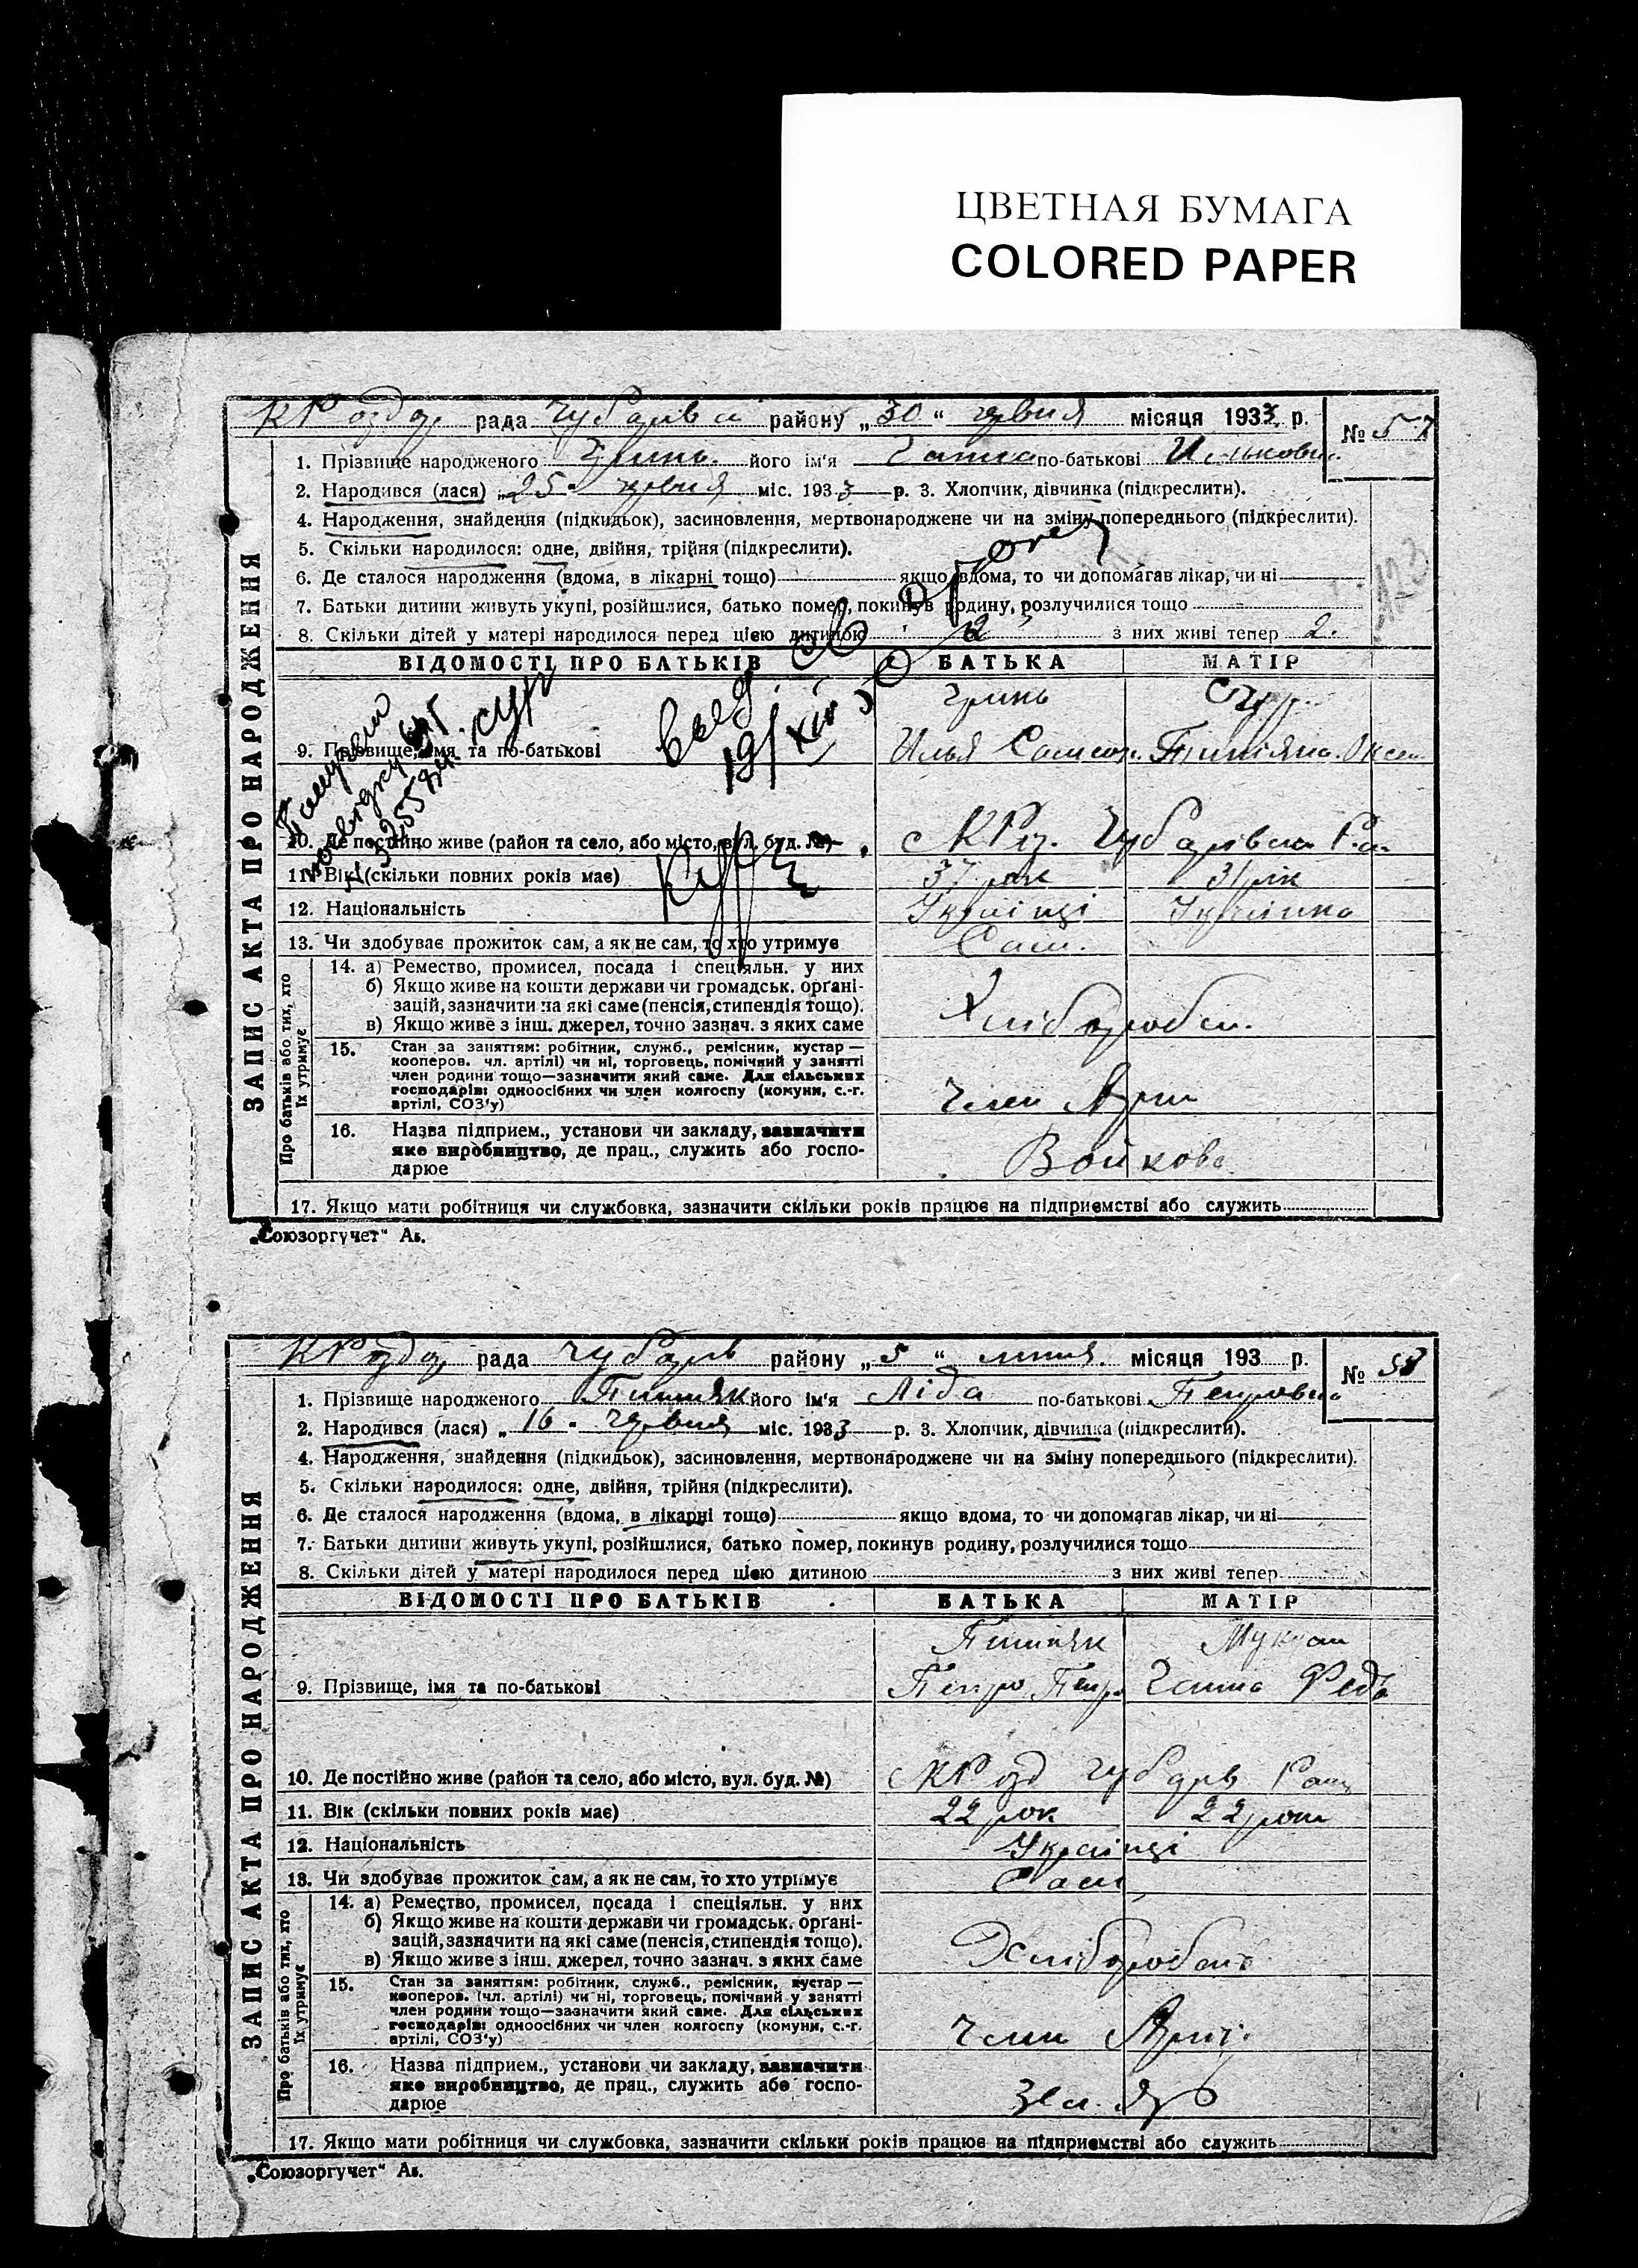 ЦВЕТНАЯ БУМАГА
COLORED PAPER
рада Чубарівск району „30" червня місяця 1933 р.
№ 57
1. Прізвище народженого Гринь його ім'я Ганна по-батькові Ильковна
2. Народився (лася) „25" червня міс. 1933 р. 3. Хлопчик, дівчинка (підкреслити).
4. Народження, знайдення (підкидьок), засиновлення, мертвонароджене чи на зміну попереднього (підкреслити).
5. Скільки народилося: одне, двійня, трійня (підкреслити).
6. Де сталося народження (вдома, в лікарні тощо) якщо вдома, то чи допомагав лікар, чи ні
7. Батьки дитини живуть укупі, розійшлися, батько помер, покинув родину, розлучилися тощо
8. Скільки дітей у матері народилося перед цією дитиною 2 з них живі тепер 2.
ВІДОМОСТІ ПРО БАТЬКІВ БАТЬКА МАТІР
Гринь
9. Прізвище, імя та по-батькові Илья
10. Де постійно живе (район та село, або місто, вул. буд. №)
11. Вік (скільки повних років має) 37 рок 31 рік
12. Національність Українці Українка
13. Чи здобуває прожиток сам, а як не сам, то хто утримує Сам.
ЗАПИС АКТА ПРО НАРОДЖЕННЯ
Про батьків або тих, хто їх утримує
14. а) Ремество, промисел, посада і спеціяльн. у них
б) Якщо живе на кошти держави чи громадськ. органі-
зацій, зазначити на які саме (пенсія, стипендія тощо).
в) Якщо живе з інш. джерел, точно зазнач. з яких саме
15. Стан за заняттям: робітник, служб., ремісник, кустар —
кооперов. чл. артілі) чи ні, торговець, помічний у занятті
член родини тощо—зазначити який саме. Для сільських
господарів: одноосібних чи член колгоспу (комуни, с.-г.
артілі, СОЗ'у)
Член
16. Назва підприєм., установи чи закладу, зазначити
яке виробництво, де прац., служить або госпо-
дарює
Войкова
17. Якщо мати робітниця чи службовка, зазначити скільки років працює на підприємстві або служить
„Союзоргучет" Аı.
рада Чубарів району „5" липня місяця 193 р.
№ 58
1. Прізвище народженого його ім'я Ліда по-батькові Петровна
2. Народився (лася) „16" червня міс. 1933 р. 3. Хлопчик, дівчинка (підкреслити).
4. Народження, знайдення (підкидьок), засиновлення, мертвонароджене чи на зміну попереднього (підкреслити).
5. Скільки народилося: одне, двійня, трійня (підкреслити).
6. Де сталося народження (вдома, в лікарні тощо) якщо вдома, то чи допомагав лікар, чи ні
7. Батьки дитини живуть укупі, розійшлися, батько помер, покинув родину, розлучилися тощо
8. Скільки дітей у матері народилося перед цією дитиною з них живі тепер
ВІДОМОСТІ ПРО БАТЬКІВ БАТЬКА МАТІР
9. Прізвище, імя та по-батькові Петро Петро Ганна Федь
10. Де постійно живе (район та село, або місто, вул. буд. №)
11. Вік (скільки повних років має) 22 рок 22 роки
12. Національність Українці
13. Чи здобуває прожиток сам, а як не сам, то хто утримує Сам
ЗАПИС АКТА ПРО НАРОДЖЕННЯ
Про батьків або тих, хто їх утримує
14. а) Ремество, промисел, посада і спеціяльн. у них
б) Якщо живе на кошти держави чи громадськ. органі-
зацій, зазначити на які саме (пенсія, стипендія тощо).
в) Якщо живе з інш. джерел, точно зазнач. з яких саме
15. Стан за заняттям: робітник, служб., ремісник, кустар —
кооперов. (чл. артілі) чи ні, торговець, помічний у занятті
член родини тощо—зазначити який саме. Для сільських
господарів: одноосібних чи член колгоспу (комуни, с.-г.
артілі, СОЗ'у)
Член
16. Назва підприєм., установи чи закладу, зазначити
яке виробництво, де прац., служить або госпо-
дарює
17. Якщо мати робітниця чи службовка, зазначити скільки років працює на підприємстві або служить
„Союзоргучет" Аı.